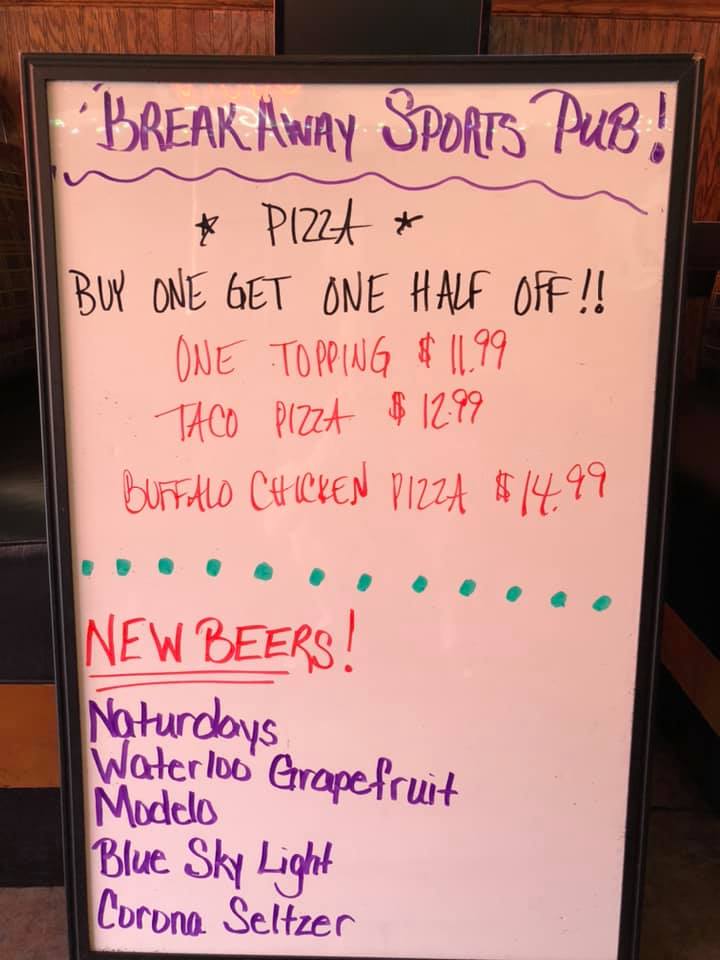 BREAK AWAY SPORTS PUB!
* PIZZA *
BUY ONE GET ONE HALF OFF!!
ONE TOPPING $11.99
TACO PIZZA $12.99
BUFFALO CHICKEN PIZZA $14.99
NEW BEERS!
Naturdays
Waterloo Grapefruit
Modelo
Blue Sky Light
Corona Seltzer